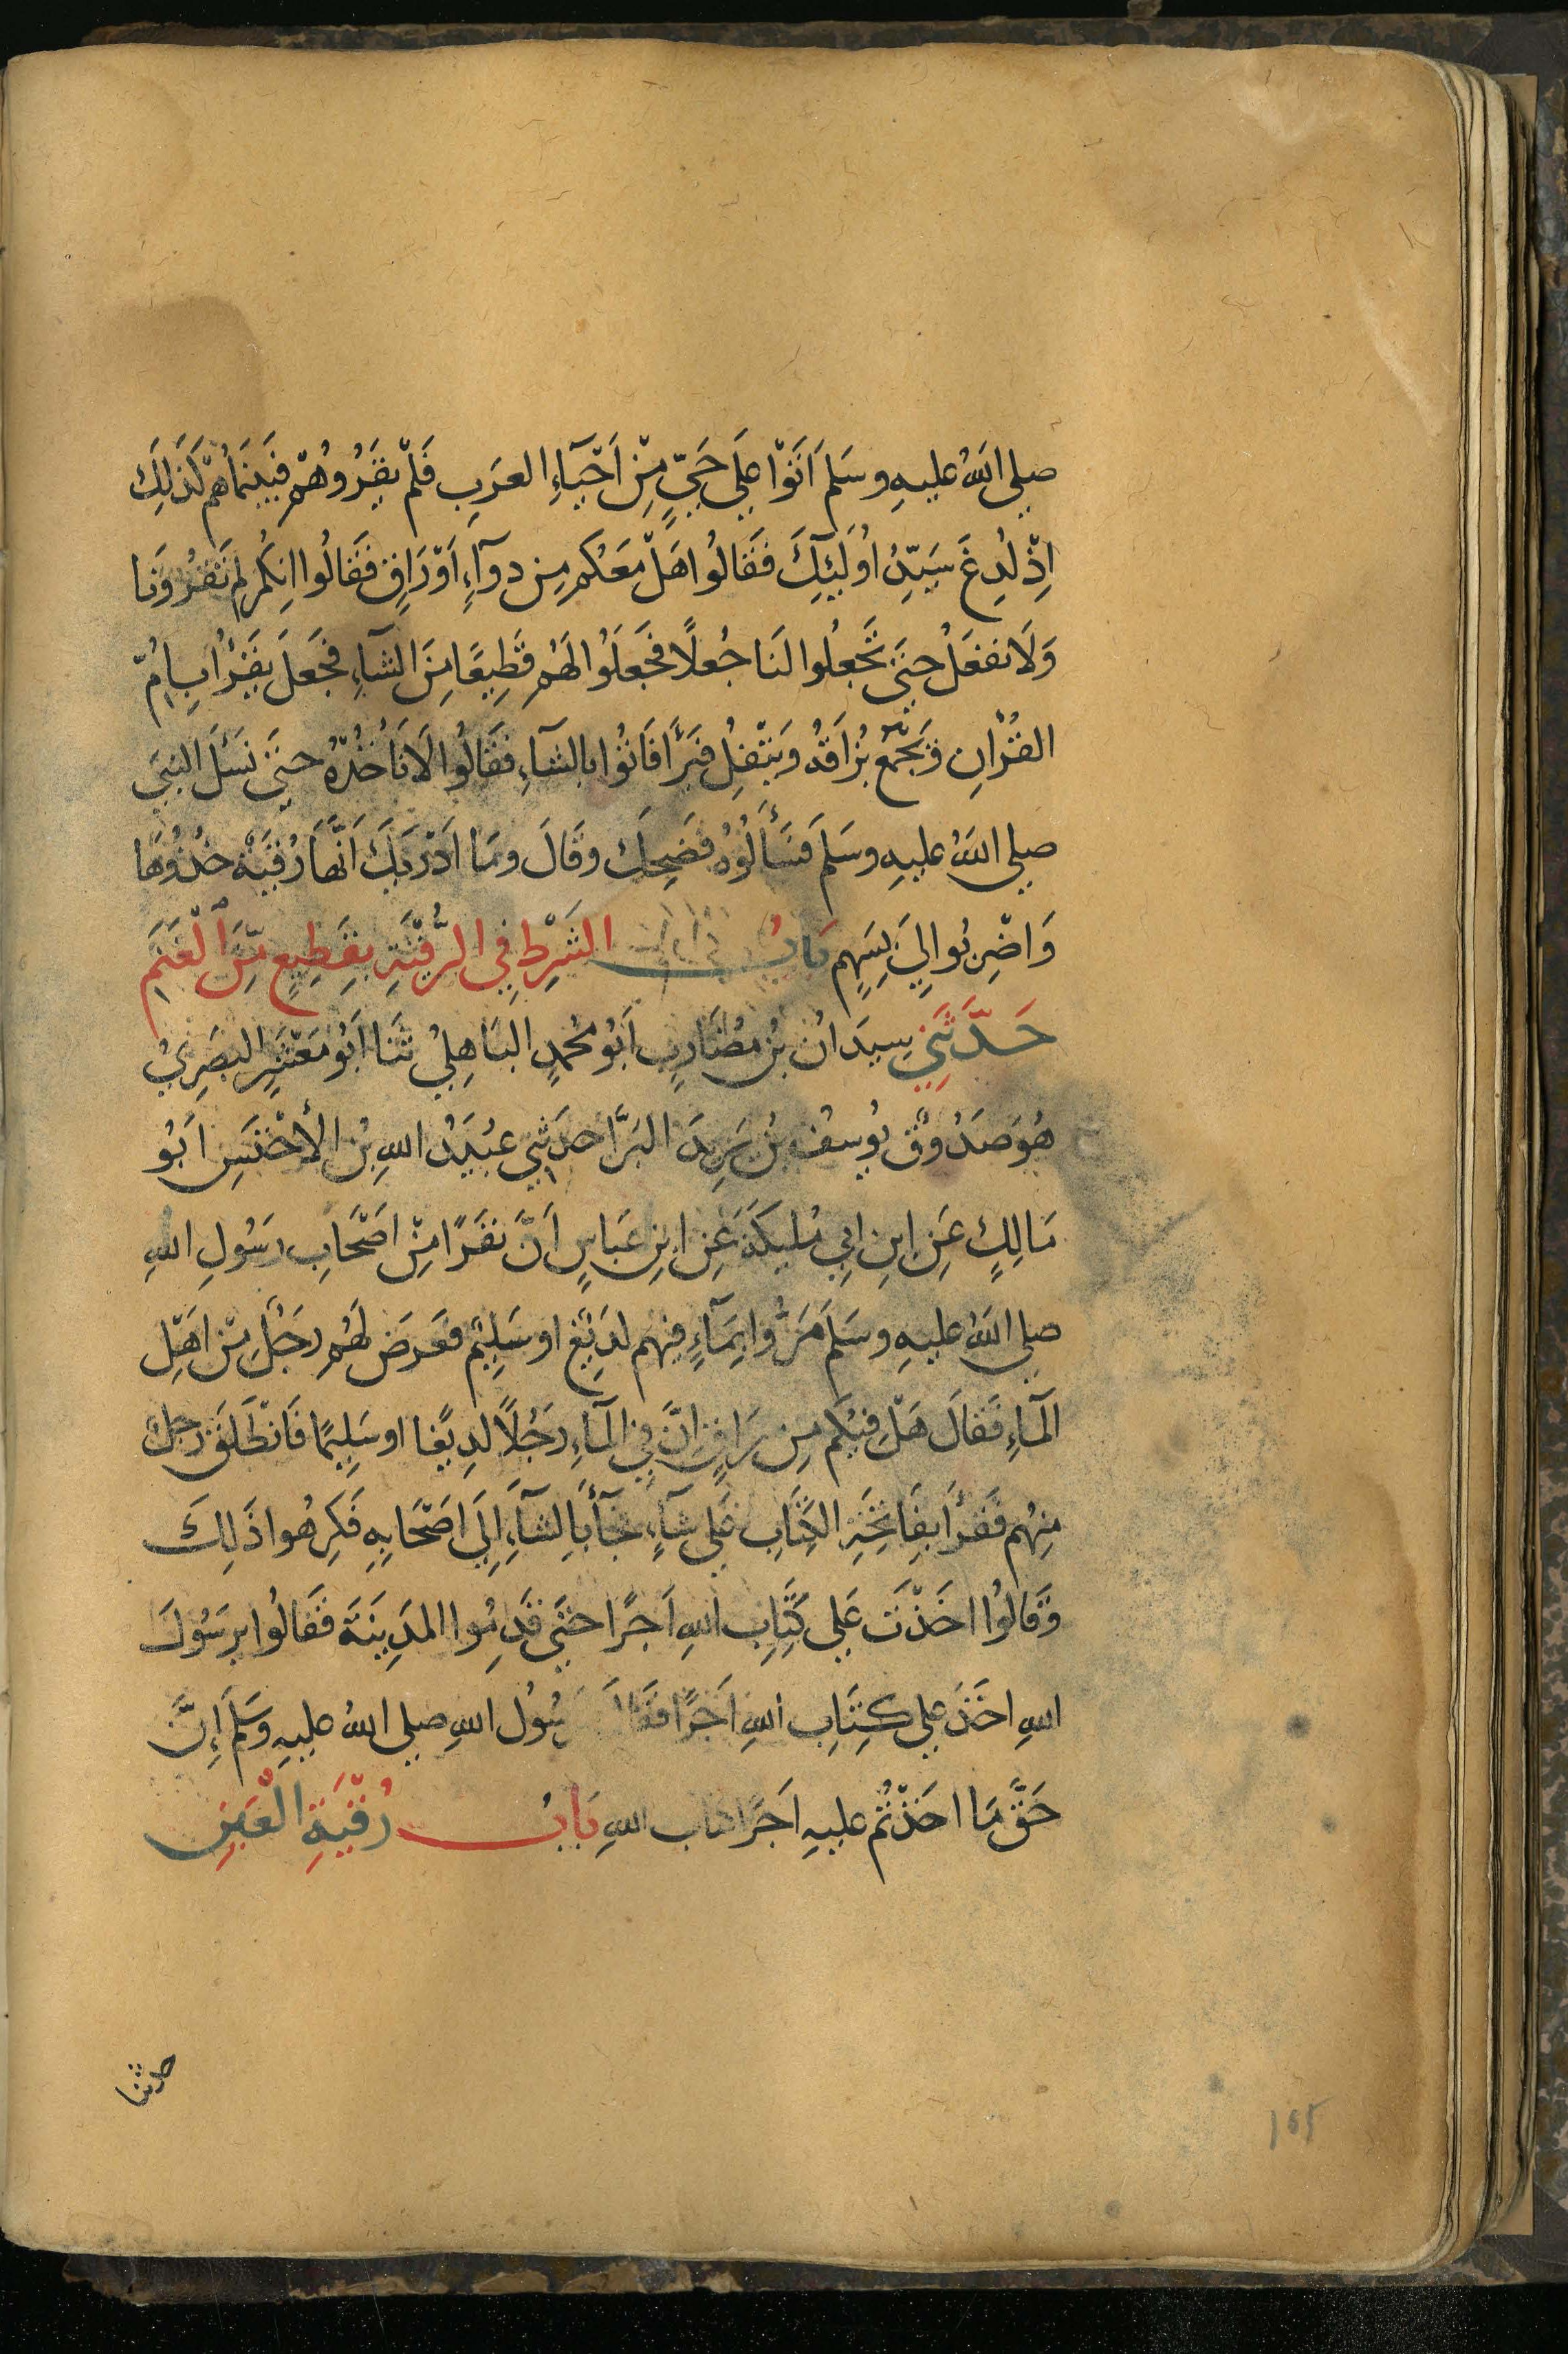 صلى اللهُ عليهِ وسَلمَ اَتَوْا عَلَى حَيٍّ مِّنْ اَحْيَآءِ العَرَبِ فَلَمْ يَقْرُوهُمْ فَبَيْنَمَا هُمْ كَذَلِكَ
اِذْ لُدِغَ سَيّدُ اُولَئِكَ فَقَالُوا هَلْ مَعَكم مِن دوآءٍ اَوْ رَاقٍ فَقَالُوا اِنكُم لم تَقْرُونَا
وَلَا نفعَلُ حتى تَجْعلُوا لنَا جُعلًا فَجَعَلُوا لهَمُ قَطِيعًا مِنَ الشآءِ فَجعَلَ يَقْرَأُ بِاُمّ
القُرْانِ وَيَجْمَعُ بُزَاقَهُ وَيَتْفِلُ فبَرأَ فَاتوُا بالشآءِ فقَالُوا لَا نَاْخُذُهُ حتى نَسْئَلَ النبىَ
صلى اللهُ عليهِ وسَلمَ فسَأَلُوهُ فضَحِكَ وقَالَ ومَا اَدْرَيكَ اَنَّهَا رُقْيَةٌ خُذُوهَا
وَاضْرِبُوا لِي بِسَهم بَابُ الشَرْطِ فِي الرُّقْيَةِ بقَطِيعٍ مِّنَ الْغَنَمِ
حَدَّثَنِي سِيدَانُ بْنُ مُضَارِبٍ اَبُو مُحمدٍ البَاهِلِيُ ثنَا اَبُو مَعْشَرٍ البَصَرِيُ
هُوَ صَدُوْقٌ يُوسفُ بْنُ يَزِيدَ البَرَّا حدَثني عبُيَدُ اللهِ بْن الأخْنَسِ اَبُو
مَالِكٍ عَنِ ابنِ ابِي مُليكَةَ عَنِ ابنِ عبَاسٍ اَنَّ نفَرًا مِّنْ اَصْحَابِ رسُولِ اللهِ
صلى اللهُ عليهِ وسَلمَ مَرُّوا بِمَآءٍ فِيهم لدِيْغٌ او سَلِيْمٌ فعَرَضَ لهُم رجَلٌ مِّن اهْلِ
المآءِ فقَالَ هَلْ فِيْكم مِن رَاقٍ اِنَّ فِي المآءِ رَجُلًا لدِيْغًا او سَلِيمًا فَانْطَلقَ رجُلٌ
مِنهُم فقَرأَ بفَاتِحَةِ الكِتَابِ عَلَى شآءٍ فجَآءَ بالشآءِ اِلَى اَصْحَابِهِ فَكَرِهُوا ذَلِكَ
وَقَالوُا اخَذْتَ عَلى كِتَابِ اللهِ اَجرًا حتَى قَدِمُوا المَدِينَةَ فقَالُوا يرَسُولَ
اللهِ اخَذَ على كِتَابِ اللهِ اَجْرًا فقَالَ سُولُ اللهِ صلى اللهُ عليهِ وسَلَمَ اِنَّ
حَقَّ مَا اخَذْتُم عليهِ اجَرًا تاب اللهِ بَابُ رُقْيَةِ الْعَيْنِ
حدثنا